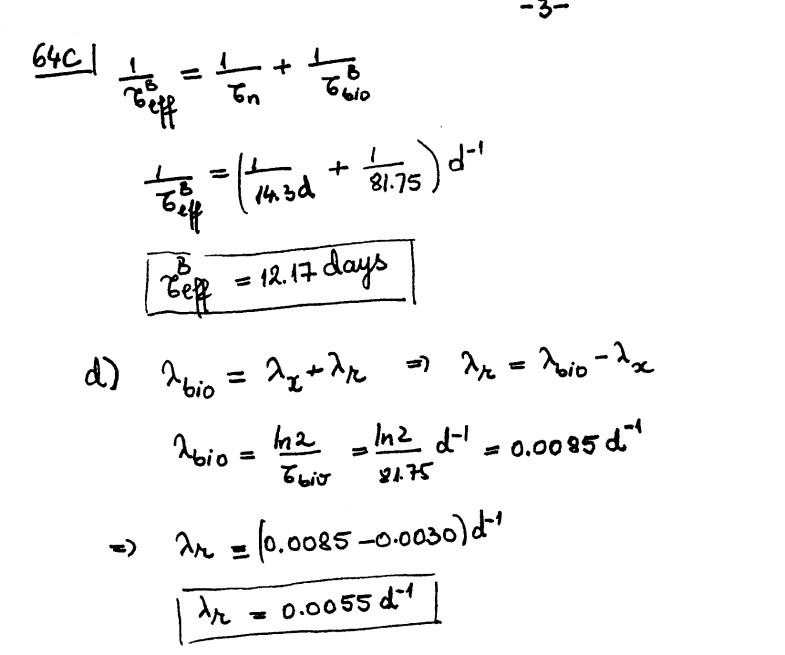 -3-
64C| 1/τ^B_eff = 1/τ_n + 1/τ^B_bio
1/τ^B_eff = (1/14.3d + 1/81.75) d^-1
τ^B_eff = 12.17 days
d) λ_bio = λ_x + λ_r ⇒ λ_r = λ_bio - λ_x
λ_bio = ln2/τ_bio = ln2/81.75 d^-1 = 0.0085 d^-1
⇒ λ_r = (0.0085 - 0.0030) d^-1
λ_r = 0.0055 d^-1